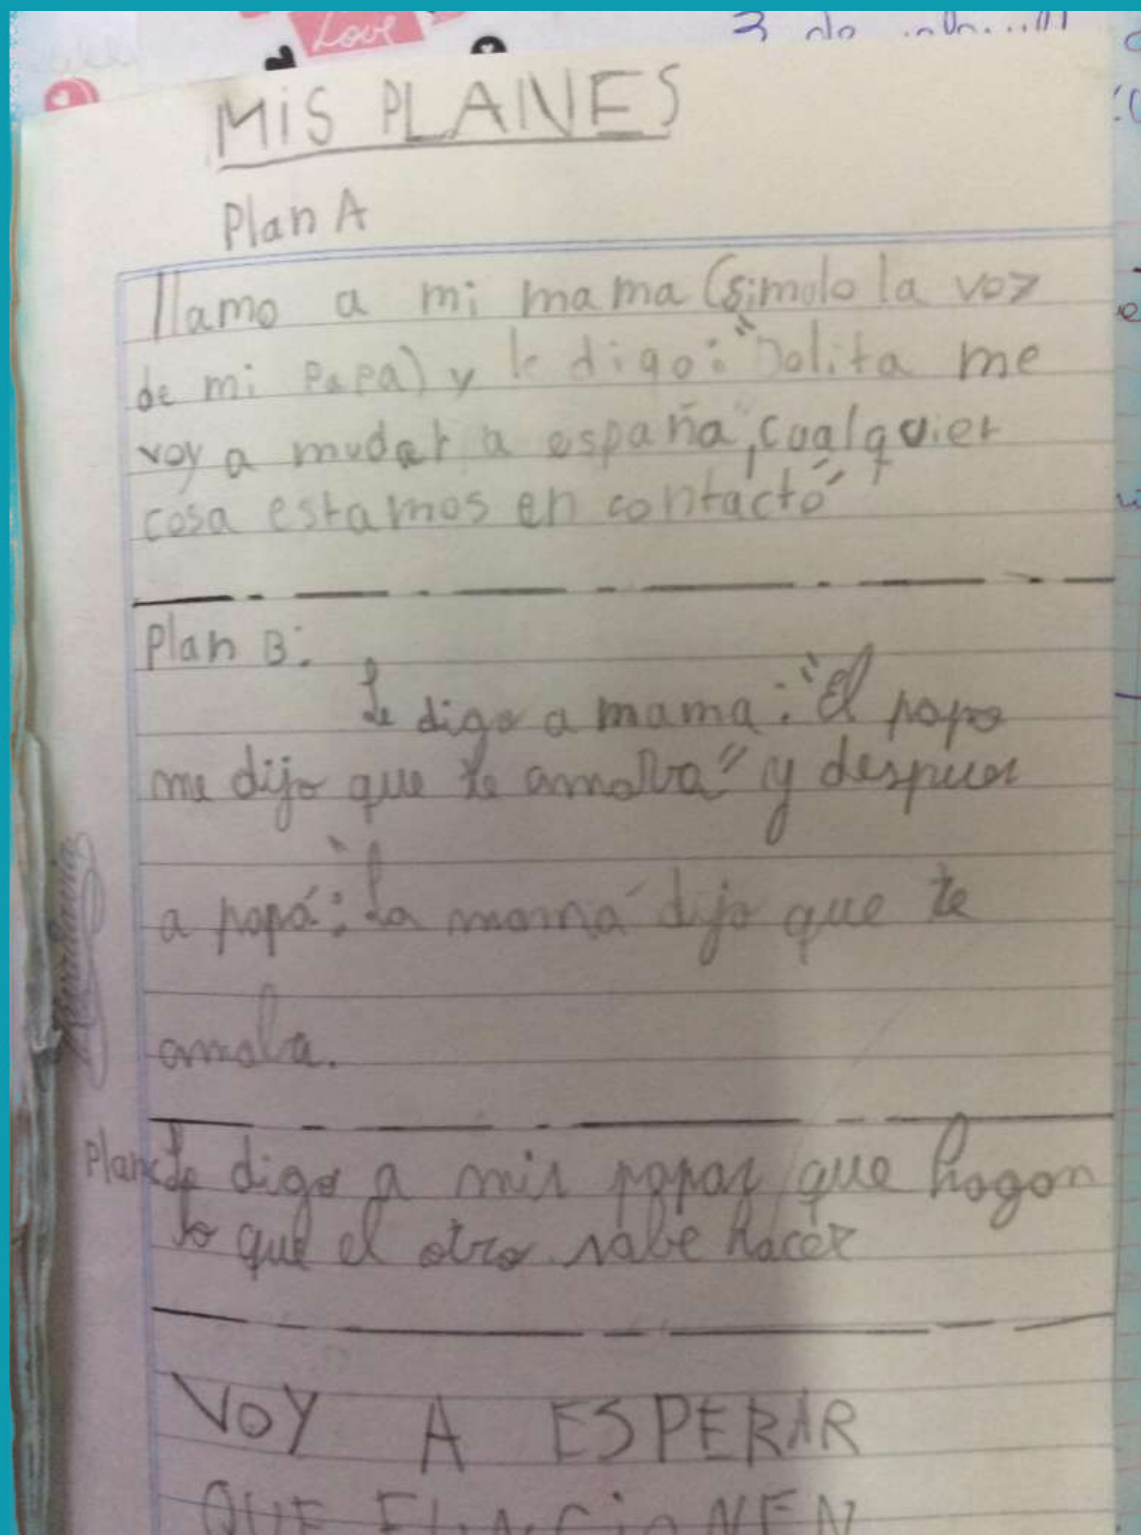 Love
MiS PLANES
Plan A
llamo a mi mama (simolo la voz
de mi Papa) y le digo: "Dolita me
voy a mudar a españa, cualquier
cosa estamos en contacto"
Plan B:
Le digo a mama: "El papa
me dijo que te amaba" y despues
a papá: "La mamá dijo que te
amaba.
Plan c Le digo a mis papas que hagan
lo que el otro sabe hacer
VOY A ESPERAR
QUE FUNCiONEN